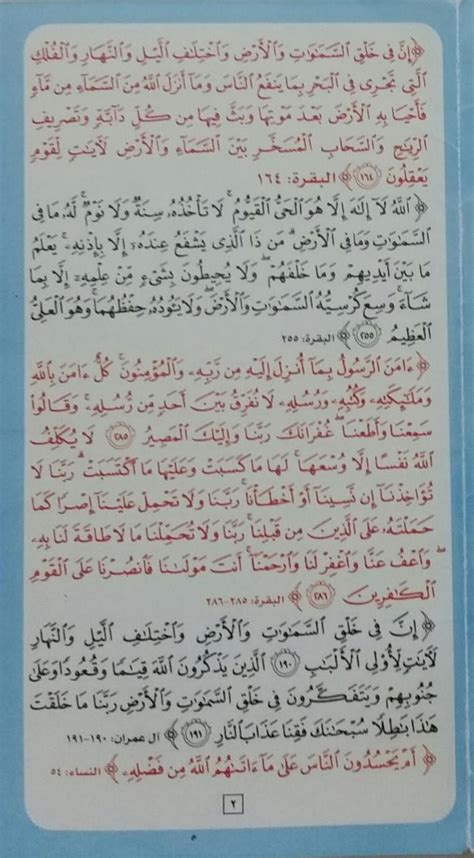 ﴿إِنَّ فِى خَلْقِ ٱلسَّمَٰوَٰتِ وَٱلْأَرْضِ وَٱخْتِلَٰفِ ٱلَّيْلِ وَٱلنَّهَارِ وَٱلْفُلْكِ
ٱلَّتِى تَجْرِى فِى ٱلْبَحْرِ بِمَا يَنفَعُ ٱلنَّاسَ وَمَآ أَنزَلَ ٱللَّهُ مِنَ ٱلسَّمَآءِ مِن مَّآءٍ
فَأَحْيَا بِهِ ٱلْأَرْضَ بَعْدَ مَوْتِهَا وَبَثَّ فِيهَا مِن كُلِّ دَآبَّةٍ وَتَصْرِيفِ
ٱلرِّيَٰحِ وَٱلسَّحَابِ ٱلْمُسَخَّرِ بَيْنَ ٱلسَّمَآءِ وَٱلْأَرْضِ لَءَايَٰتٍ لِّقَوْمٍ
يَعْقِلُونَ ١٦٤﴾ البقرة: ١٦٤
﴿ٱللَّهُ لَآ إِلَٰهَ إِلَّا هُوَ ٱلْحَىُّ ٱلْقَيُّومُ ۚ لَا تَأْخُذُهُۥ سِنَةٌ وَلَا نَوْمٌ ۚ لَّهُۥ مَا فِى
ٱلسَّمَٰوَٰتِ وَمَا فِى ٱلْأَرْضِ ۗ مَن ذَا ٱلَّذِى يَشْفَعُ عِندَهُۥٓ إِلَّا بِإِذْنِهِۦ ۚ يَعْلَمُ
مَا بَيْنَ أَيْدِيهِمْ وَمَا خَلْفَهُمْ ۖ وَلَا يُحِيطُونَ بِشَىْءٍ مِّنْ عِلْمِهِۦٓ إِلَّا بِمَا
شَآءَ ۚ وَسِعَ كُرْسِيُّهُ ٱلسَّمَٰوَٰتِ وَٱلْأَرْضَ ۖ وَلَا يَـُٔودُهُۥ حِفْظُهُمَا ۚ وَهُوَ ٱلْعَلِىُّ
ٱلْعَظِيمُ ٢٥٥﴾ البقرة: ٢٥٥
﴿ءَامَنَ ٱلرَّسُولُ بِمَآ أُنزِلَ إِلَيْهِ مِن رَّبِّهِۦ وَٱلْمُؤْمِنُونَ ۚ كُلٌّ ءَامَنَ بِٱللَّهِ
وَمَلَٰٓئِكَتِهِۦ وَكُتُبِهِۦ وَرُسُلِهِۦ لَا نُفَرِّقُ بَيْنَ أَحَدٍ مِّن رُّسُلِهِۦ ۚ وَقَالُوا۟
سَمِعْنَا وَأَطَعْنَا ۖ غُفْرَانَكَ رَبَّنَا وَإِلَيْكَ ٱلْمَصِيرُ ٢٨٥ لَا يُكَلِّفُ
ٱللَّهُ نَفْسًا إِلَّا وُسْعَهَا ۚ لَهَا مَا كَسَبَتْ وَعَلَيْهَا مَا ٱكْتَسَبَتْ ۗ رَبَّنَا لَا
تُؤَاخِذْنَآ إِن نَّسِينَآ أَوْ أَخْطَأْنَا ۚ رَبَّنَا وَلَا تَحْمِلْ عَلَيْنَآ إِصْرًا كَمَا
حَمَلْتَهُۥ عَلَى ٱلَّذِينَ مِن قَبْلِنَا ۚ رَبَّنَا وَلَا تُحَمِّلْنَا مَا لَا طَاقَةَ لَنَا بِهِۦ ۖ
وَٱعْفُ عَنَّا وَٱغْفِرْ لَنَا وَٱرْحَمْنَآ ۚ أَنتَ مَوْلَىٰنَا فَٱنصُرْنَا عَلَى ٱلْقَوْمِ
ٱلْكَٰفِرِينَ ٢٨٦﴾ البقرة: ٢٨٥-٢٨٦
﴿إِنَّ فِى خَلْقِ ٱلسَّمَٰوَٰتِ وَٱلْأَرْضِ وَٱخْتِلَٰفِ ٱلَّيْلِ وَٱلنَّهَارِ
لَءَايَٰتٍ لِّأُو۟لِى ٱلْأَلْبَٰبِ ١٩٠ ٱلَّذِينَ يَذْكُرُونَ ٱللَّهَ قِيَٰمًا وَقُعُودًا وَعَلَىٰ
جُنُوبِهِمْ وَيَتَفَكَّرُونَ فِى خَلْقِ ٱلسَّمَٰوَٰتِ وَٱلْأَرْضِ رَبَّنَا مَا خَلَقْتَ
هَٰذَا بَٰطِلًا سُبْحَٰنَكَ فَقِنَا عَذَابَ ٱلنَّارِ ١٩١﴾ ال عمران: ١٩٠-١٩١
﴿أَمْ يَحْسُدُونَ ٱلنَّاسَ عَلَىٰ مَآ ءَاتَىٰهُمُ ٱللَّهُ مِن فَضْلِهِۦ﴾ النساء: ٥٤
٢